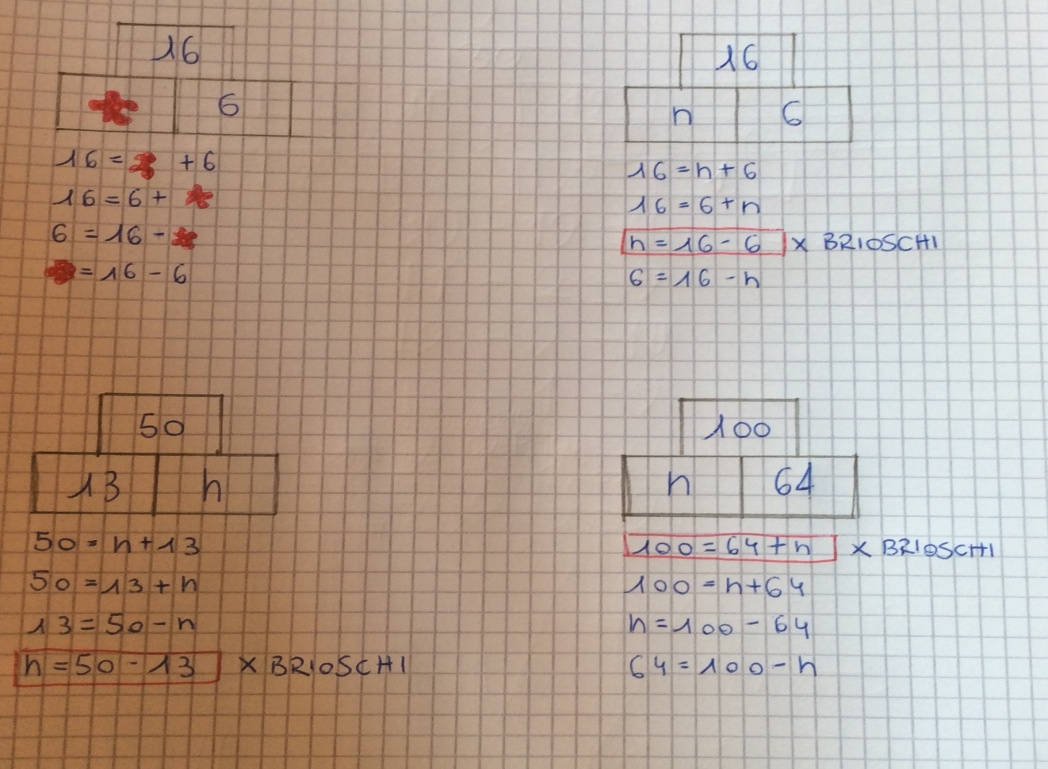 16
6
16 = + 6
16 = 6 +
6 = 16 -
= 16 - 6
16
n 6
16 = n + 6
16 = 6 + n
n = 16 - 6 x BRIOSCHI
6 = 16 - n
50
13 n
50 = n + 13
50 = 13 + n
13 = 50 - n
n = 50 - 13 x BRIOSCHI
100
n 64
100 = 64 + n x BRIOSCHI
100 = n + 64
n = 100 - 64
64 = 100 - n